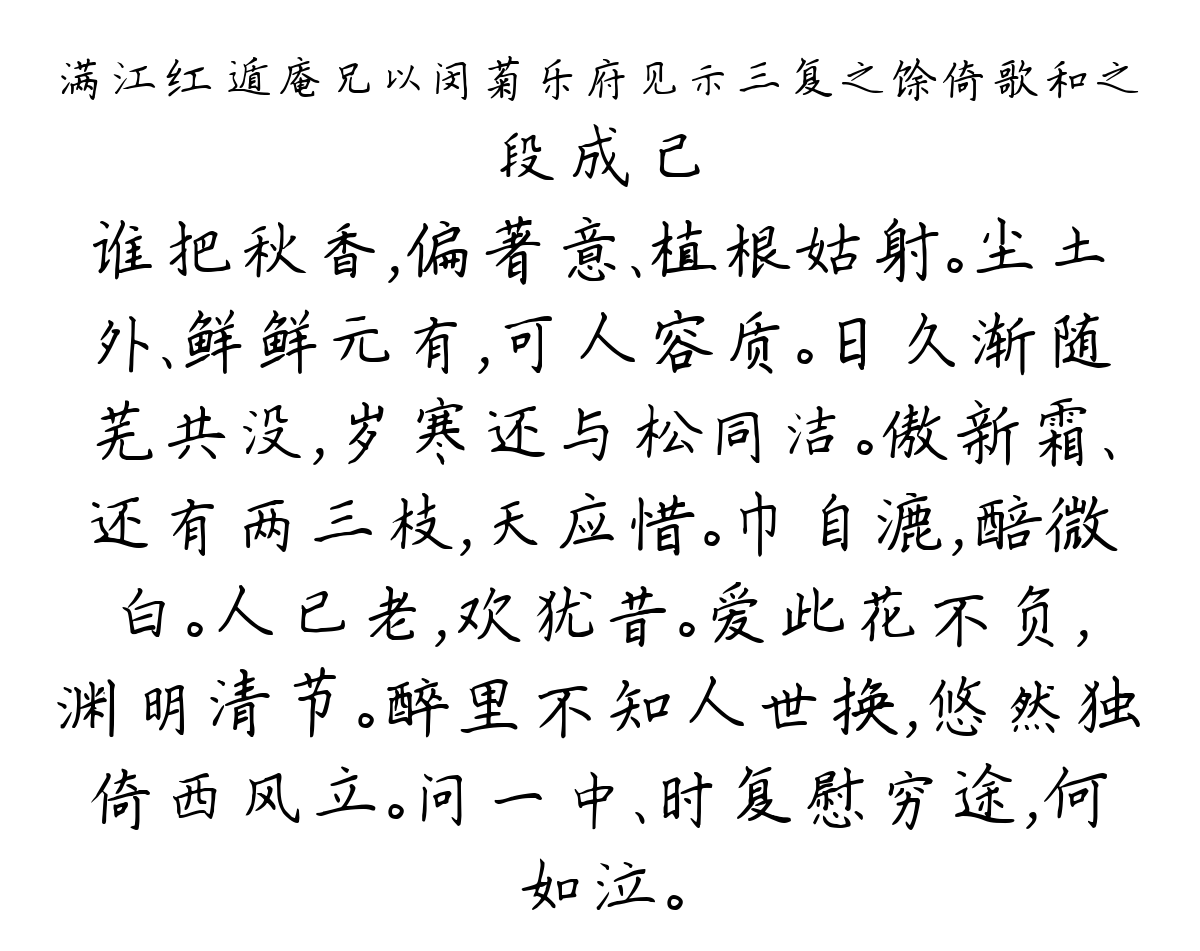 满江红 遁庵兄以闵菊乐府见示三复之馀倚歌和之
段成己
谁把秋香,偏著意、植根姑射。尘土
外、鲜鲜元有,可人容质。日久渐随
芜共没,岁寒还与松同洁。傲新霜、
还有两三枝,天应惜。巾自漉,醅微
白。人已老,欢犹昔。爱此花不负,
渊明清节。醉里不知人世换,悠然独
倚西风立。问一中、时复慰穷途,何
如泣。